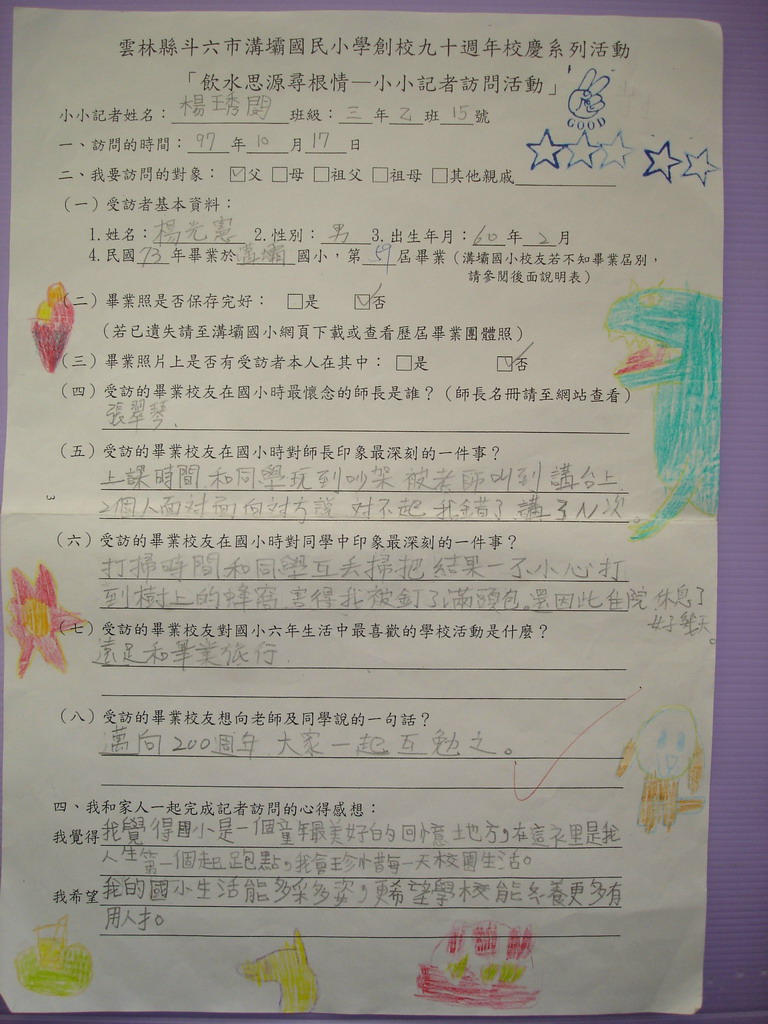 雲林縣斗六市溝壩國民小學創校九十週年校慶系列活動
「飲水思源尋根情—小小記者訪問活動」
GOOD
小小記者姓名：楊琇閔班級：三年乙班15號
一、訪問的時間：97年10月17日
二、我要訪問的對象：☑父 □母 □祖父 □祖母 □其他親戚
（一）受訪者基本資料：
1.姓名：楊光憲 2.性別：男 3.出生年月：60年2月
4.民國73年畢業於溝壩國小，第59屆畢業（溝壩國小校友若不知畢業屆別，
請參閱後面說明表）
（二）畢業照是否保存完好：□是 ☑否
（若已遺失請至溝壩國小網頁下載或查看歷屆畢業團體照）
（三）畢業照片上是否有受訪者本人在其中：□是 ☑否
（四）受訪的畢業校友在國小時最懷念的師長是誰？（師長名冊請至網站查看）
張翠琴.
（五）受訪的畢業校友在國小時對師長印象最深刻的一件事？
上課時間和同學玩到吵架被老師叫到講台上
2個人面對面向對方說 對不起 我錯了 講了N次。
3
（六）受訪的畢業校友在國小時對同學中印象最深刻的一件事？
打掃時間和同學互丟掃把 結果一不小心打
到樹上的蜂窩 害得我被釘了滿頭包。還因此住院休息了
好幾天。
（七）受訪的畢業校友對國小六年生活中最喜歡的學校活動是什麼？
遠足和畢業旅行.
（八）受訪的畢業校友想向老師及同學說的一句話？
邁向200周年 大家一起互勉之。
四、我和家人一起完成記者訪問的心得感想：
我覺得我覺得國小是一個童年最美好的回憶地方，在這裡是我
人生第一個起跑點，我會珍惜每一天校園生活。
我希望我的國小生活能多采多姿，更希望學校能培養更多有
用人才。